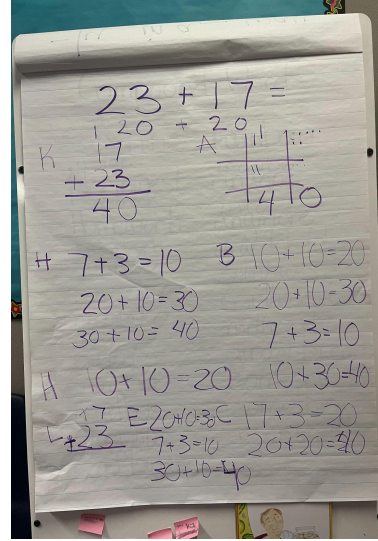 23 + 17 =
20 + 20
K
1
17
+ 23
40
A
40
H 7+3=10
20+10=30
30+10= 40
B 10+10=20
20+10=30
7+3=10
10+30=40
H 10+10=20
L
17
+23
E 20+10=30
7+3=10
30+10=40
C 17+3=20
20+20=40